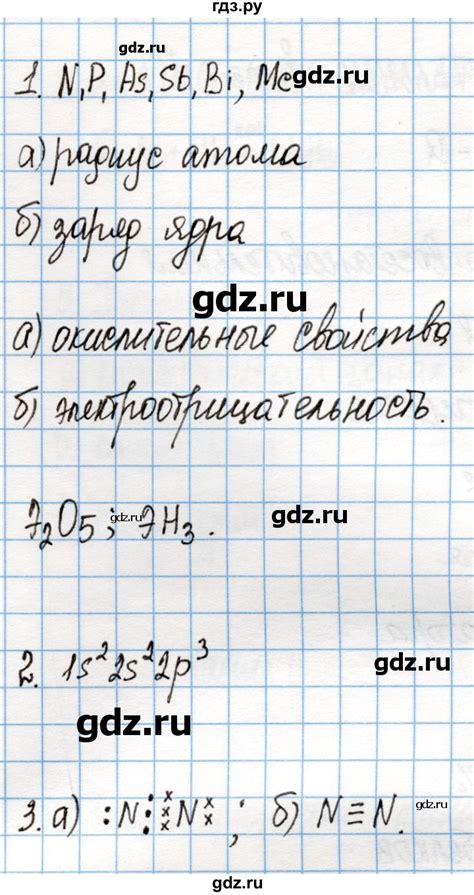 гдз.ру
1. N, P, As, Sb, Bi, Mc
gdz.ru
а) радиус атома
б) заряд ядра
gdz.ru
а) окислительные свойства
gdz.ru
б) электроотрицательность.
gdz.ru
Э2O5; ЭH3.
gdz.ru
2. 1s²2s²2p³
gdz.ru
gdz.ru
3. а) :N⋮ˣₓˣNˣₓ ; б) N≡N.
gdz.ru
gdz.ru